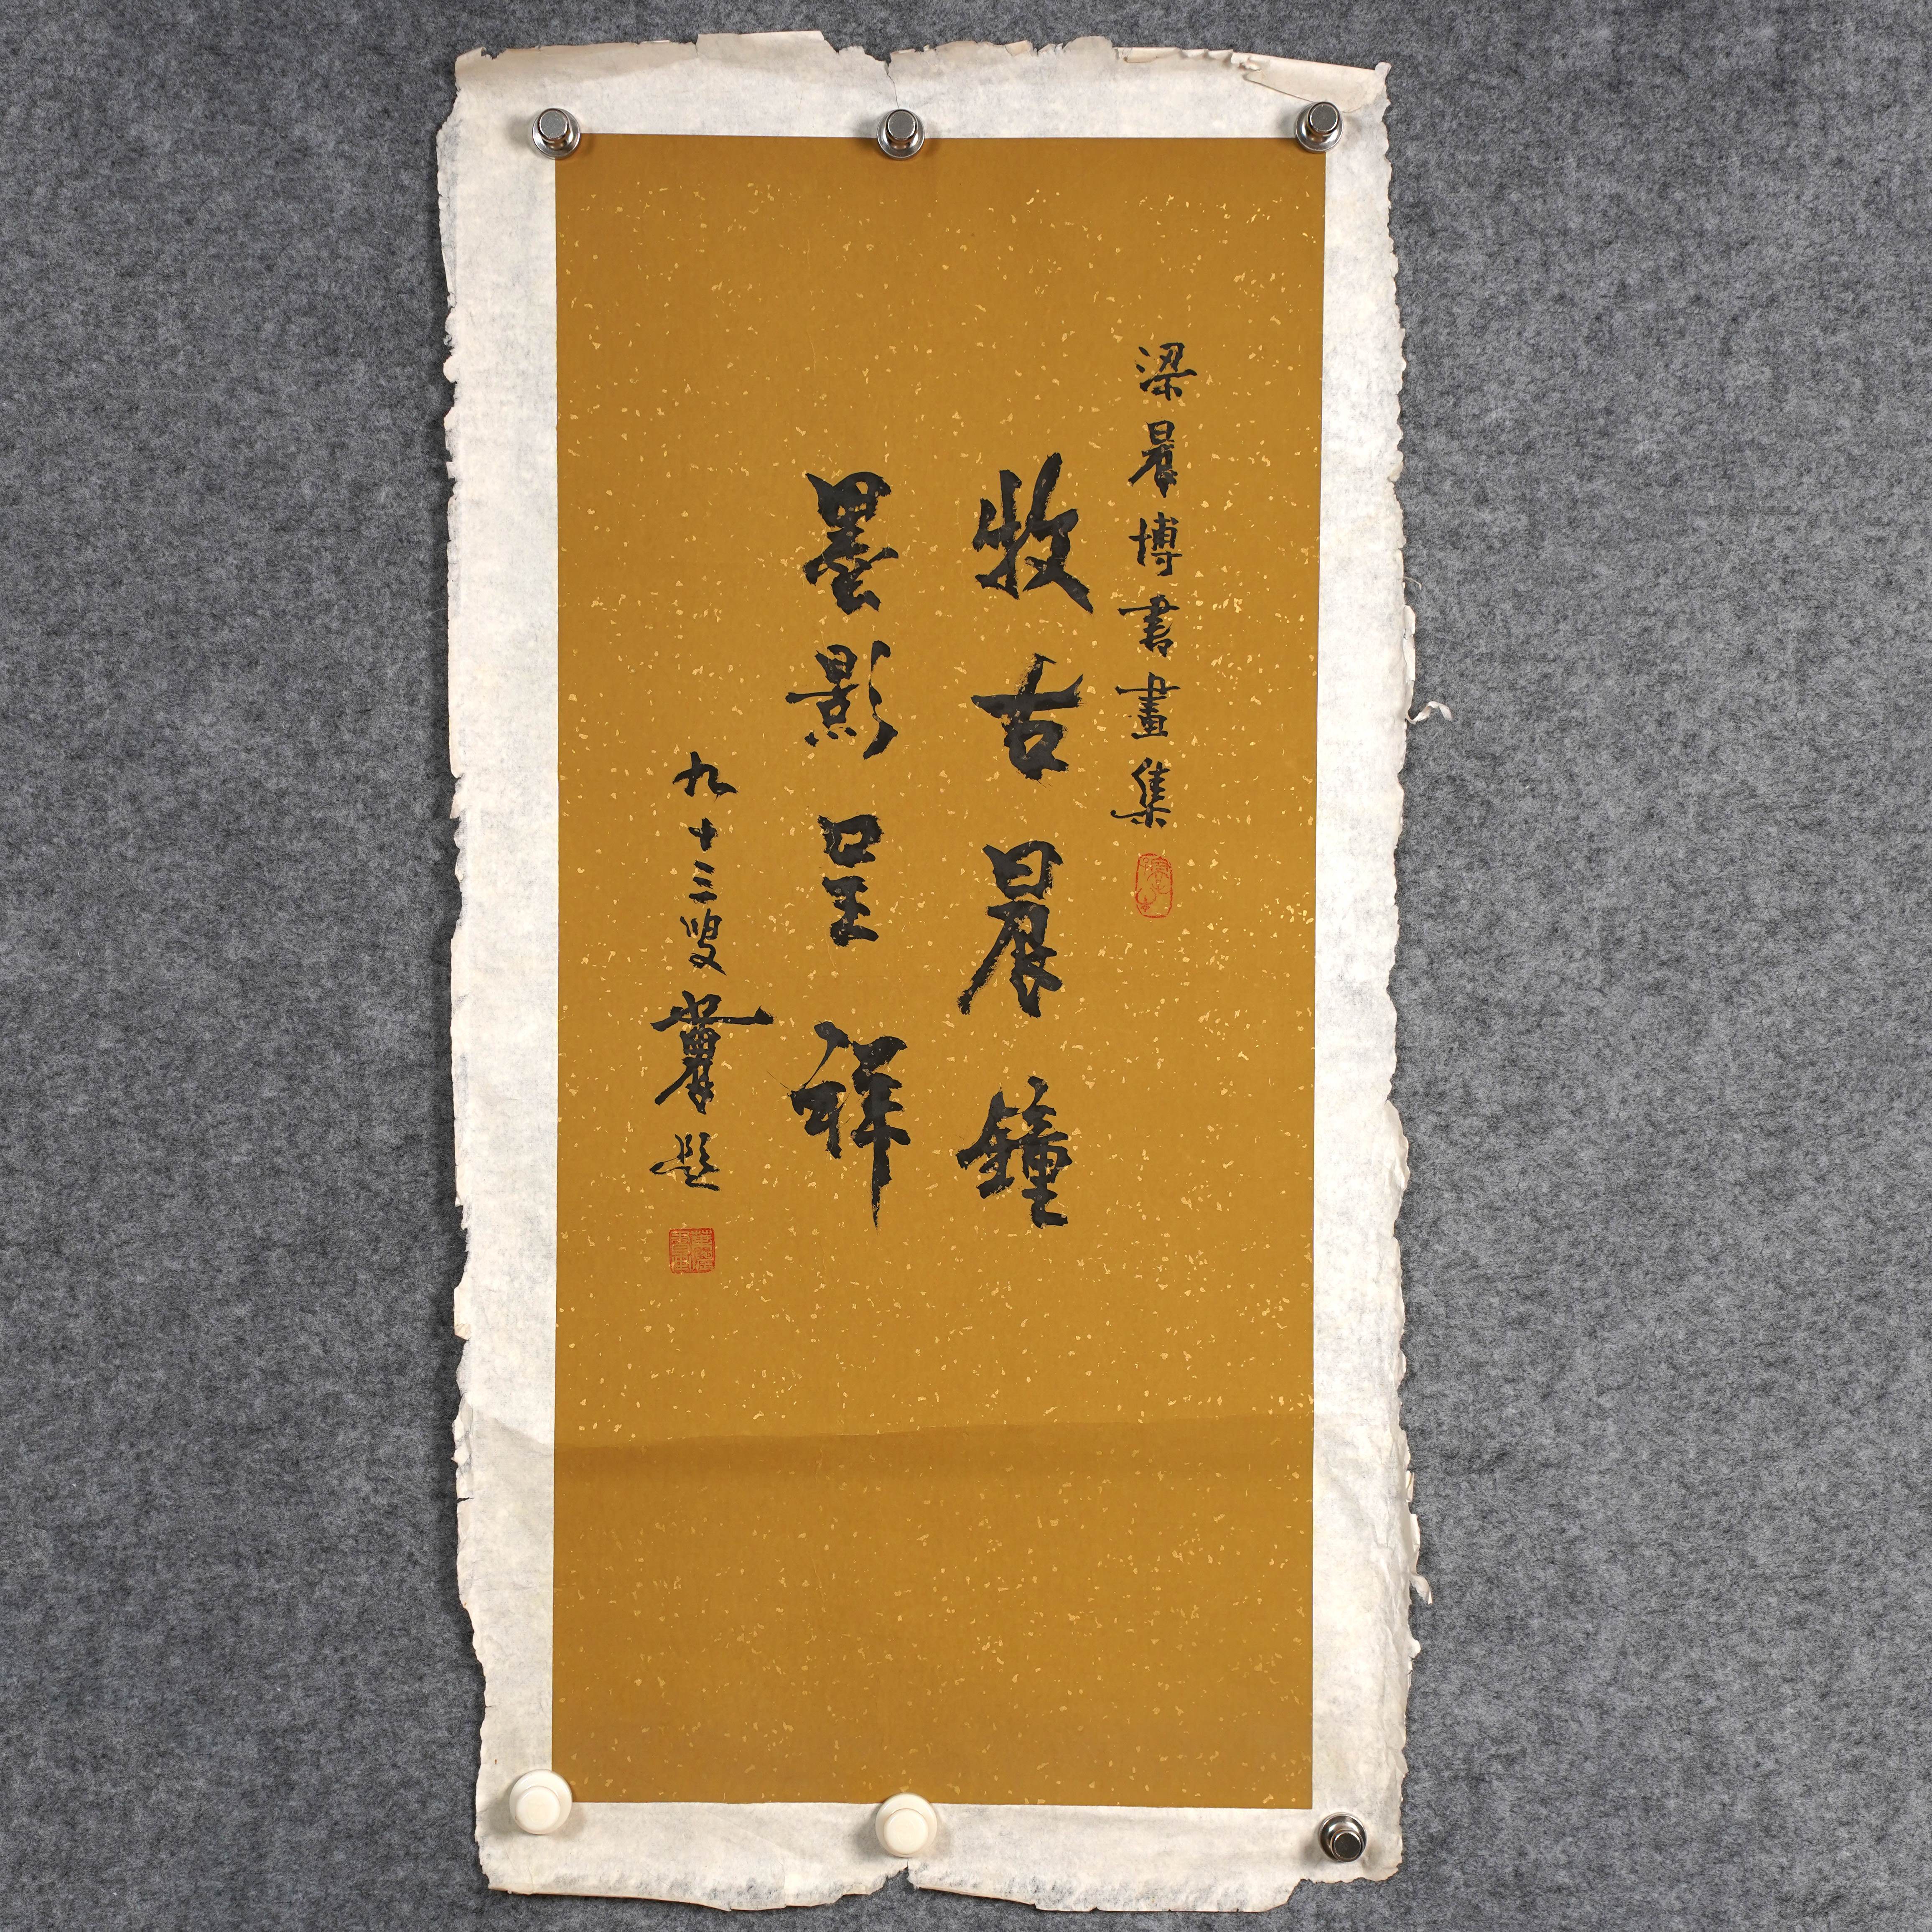 梁晨博書畫集
牧古晨鐘
墨影呈祥
九十三叟 題